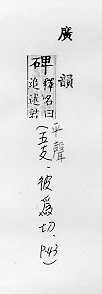 廣韻
碑
釋名曰
追述君
平聲
(五支‧彼為切‧P43)